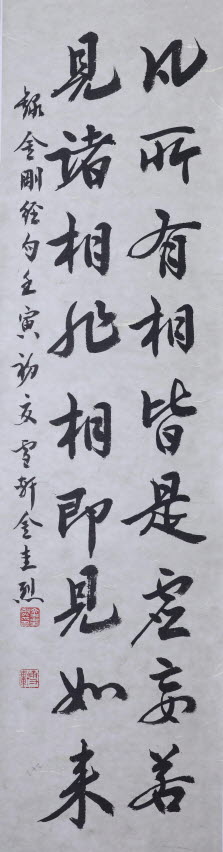 凡所有相皆是虛妄若
見諸相非相即見如来
録金剛經句壬寅初夏雪軒金圭烈